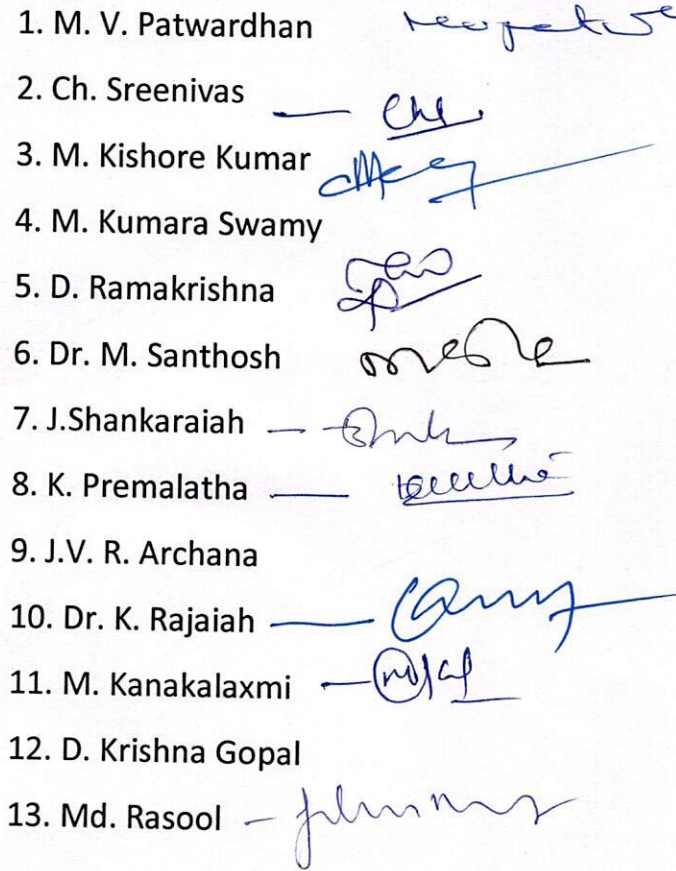 1. M. V. Patwardhan
2. Ch. Sreenivas
3. M. Kishore Kumar
4. M. Kumara Swamy
5. D. Ramakrishna
6. Dr. M. Santhosh
7. J.Shankaraiah
8. K. Premalatha
9. J.V. R. Archana
10. Dr. K. Rajaiah
11. M. Kanakalaxmi
12. D. Krishna Gopal
13. Md. Rasool